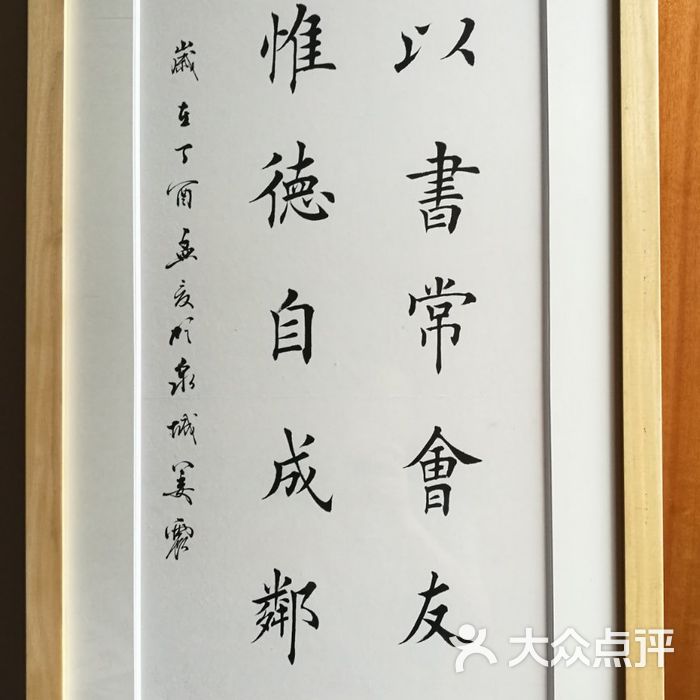 以書常會友
惟德自成鄰
歲在丁酉孟夏於泉城姜震
大众点评